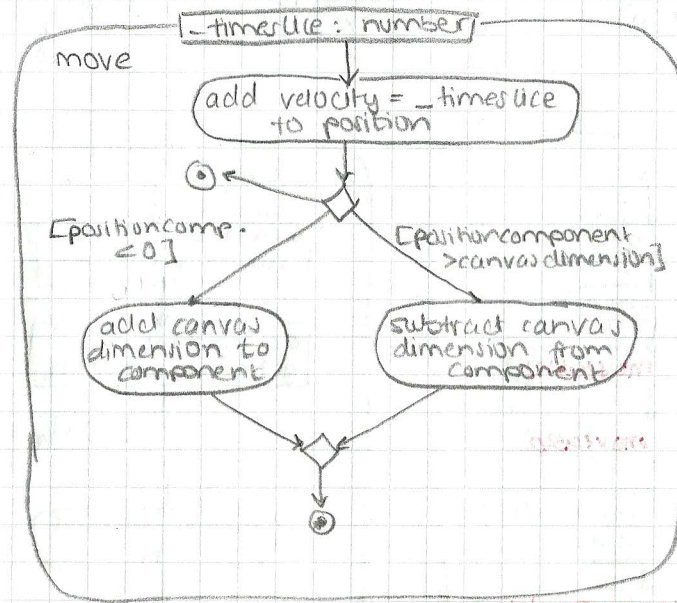 _timeslice: number
move
add velocity = _timeslice
to position
[positioncomp.
<0]
[positioncomponent
>canvasdimension]
add canvas
dimension to
component
subtract canvas
dimension from
component